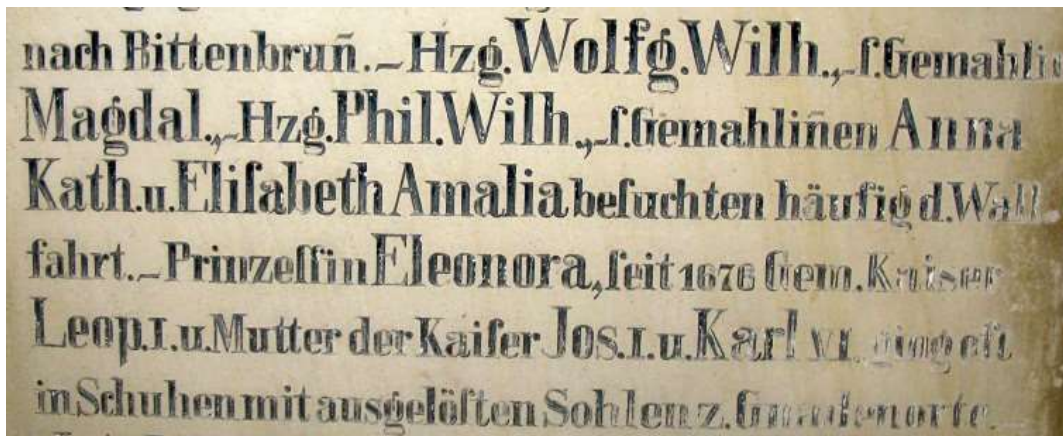 nach Bittenbruñ.–Hzg.Wolfg.Wilh.,–ſ.Gemahlin
Magdal.,–Hzg.Phil.Wilh.,–ſ.Gemahliñen Anna
Kath.u.Eliſabeth Amalia beſuchten häufig d.Wall
fahrt.–Prinzeſſin Eleonora,ſeit 1676 Gem.Kaiser
Leop.I.u.Mutter der Kaiſer Jos.I.u.Karl VI. ging oft
in Schuhen mit ausgelöſten Sohlen z.Gnadenorte.